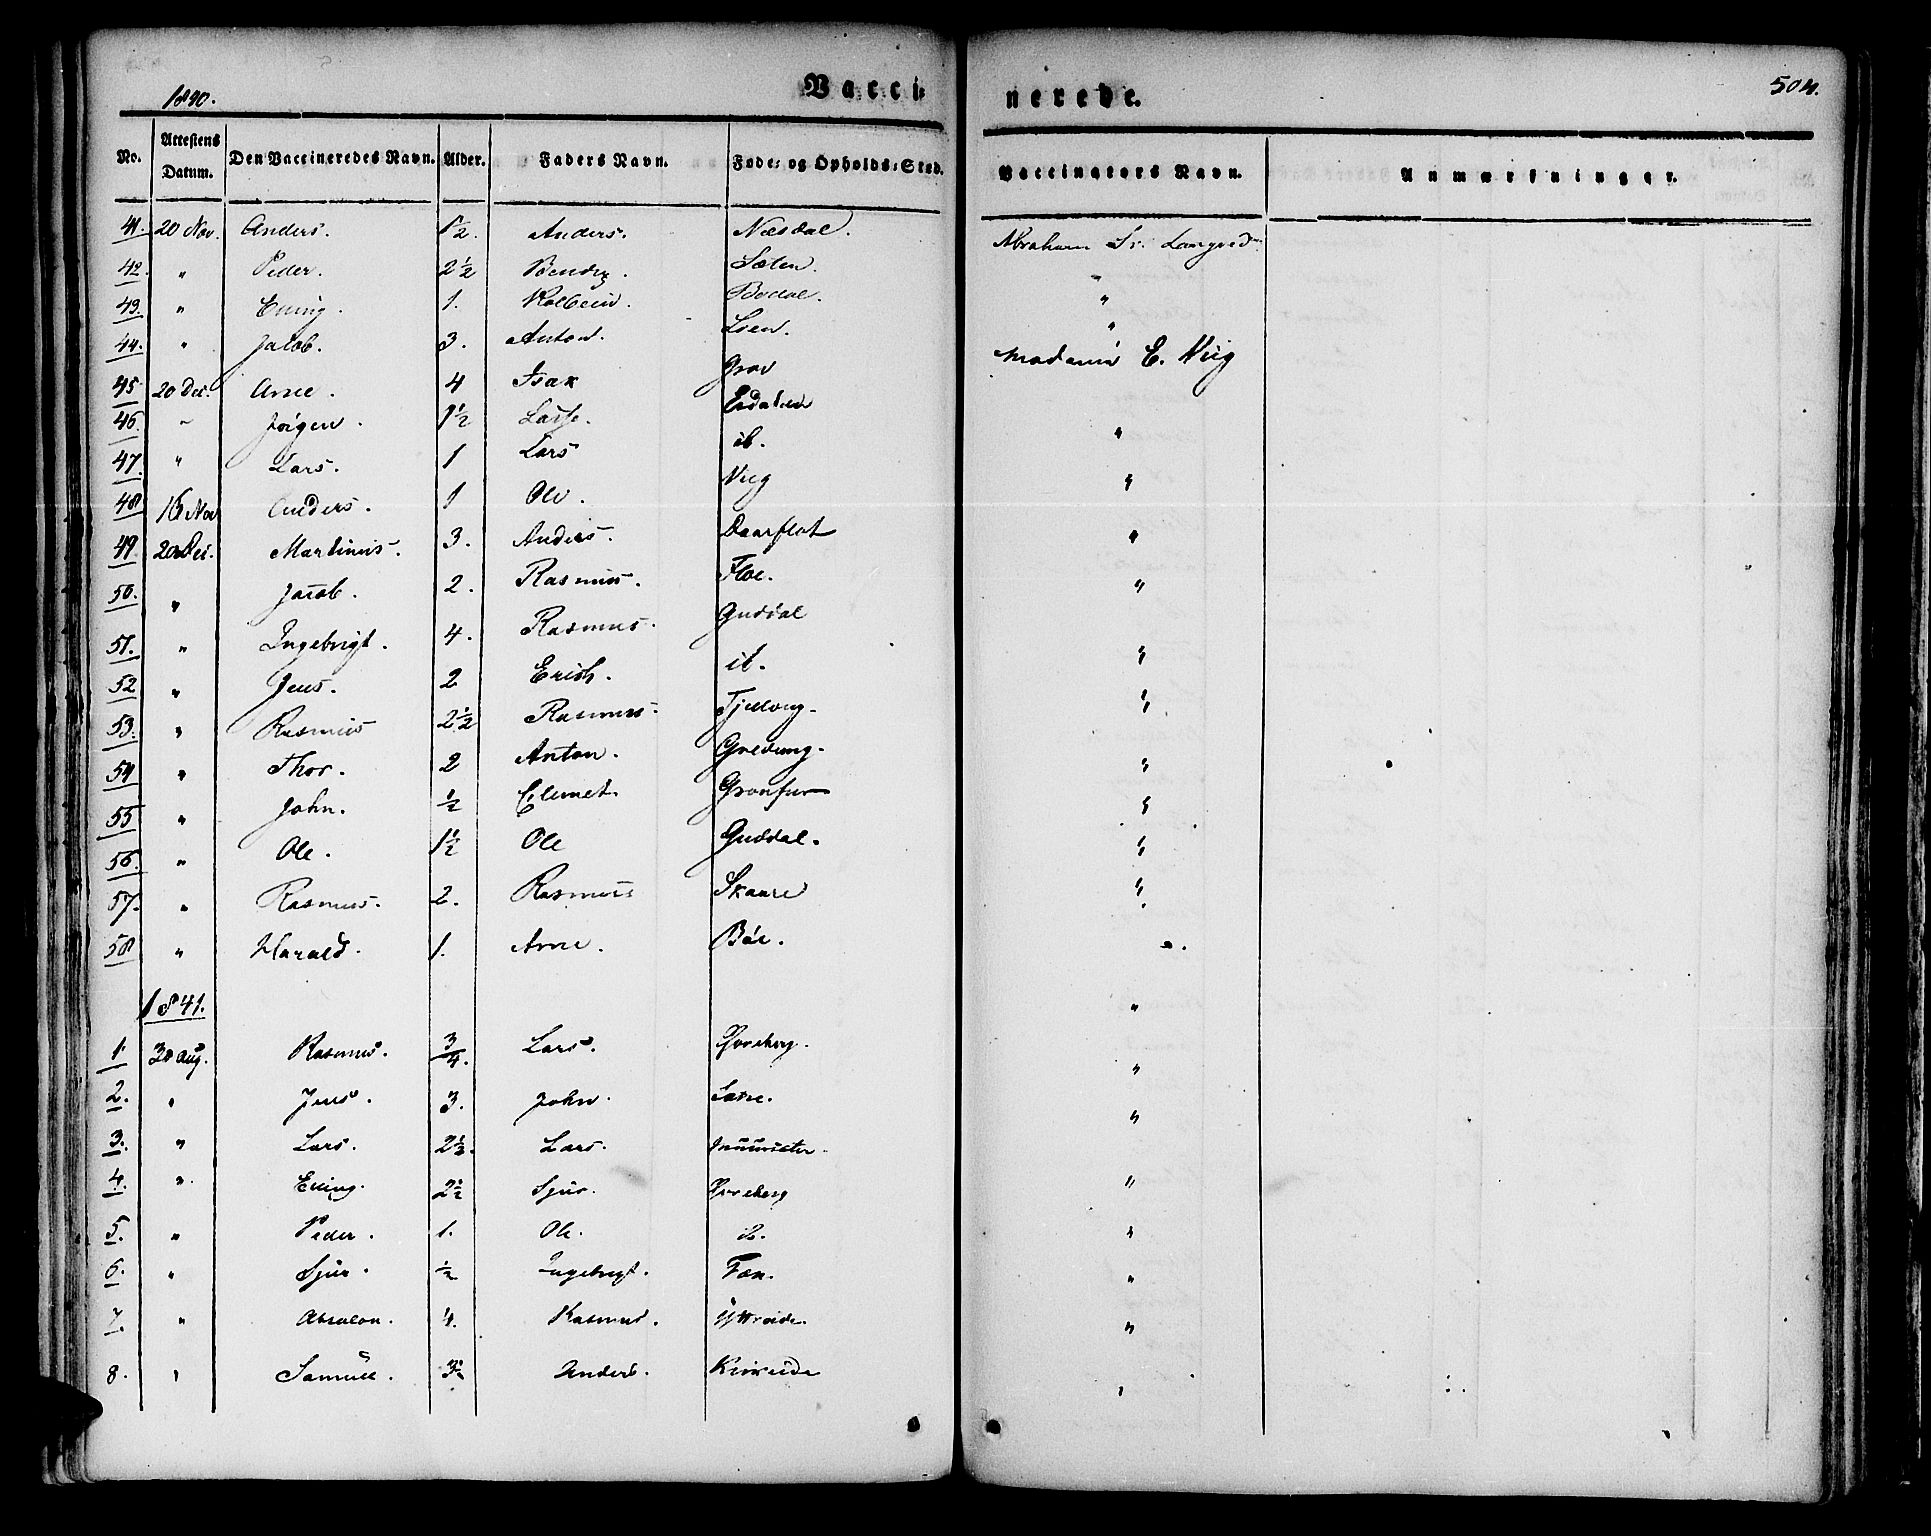 1840.
Vaccinerede.
504.
No. Attestens Datum. Den Vaccineredes Navn. Alder. Faders Navn. Føde- og Opholds-Sted. Vaccinators Navn. Anmærkninger.
41. 20 Nov. Anders. 1½. Anders. Næsdal. Abraham
42. " Peder. 2½ Bendix. Sæten. "
43. " Elling. 1. Kolbein. Bødal. "
44. " Jacob. 3. Anton. Loen. "
45 20 Dec. Arne. 4 Isak Grov Madame E. Viig
46. " Jørgen. 1½ Lasse. Erdalen "
47. " Lars. 1 Lars ib. "
48 16 Nov Anders. 1 Ole. Viig "
49. 20 Dec. Martinus. 3. Anders. Daarflot "
50. " Jacob. 2. Rasmus. Floe. "
51. " Ingebrigt. 4. Rasmus. Guddal "
52 " Jens. 2 Erich. ib. "
53. " Rasmus 2½ Rasmus. Tjelloug. "
54 " Thor. 2 Anton. Gredung. "
55 " John. ½ Clemet. Grønfur "
56. " Ole. 1½ Ole Guddal. "
57. " Rasmus. 2. Rasmus Skaare "
58 " Harald. 1. Arne. Bøe. "
1841.
1. Aug. Rasmus. ¾. Lars. "
2. " Jens. 3. John. "
3. " Lars. 2½. Lars. "
4. " Elling. 2½ Sjur. "
5. " Peder. 1. Ole. ib. "
6. " Sjur. ½ Ingebrigt. "
7. " Absalon. 4. Rasmus. Yttreide. "
8. " Samuel. Anders. Kirkeide "